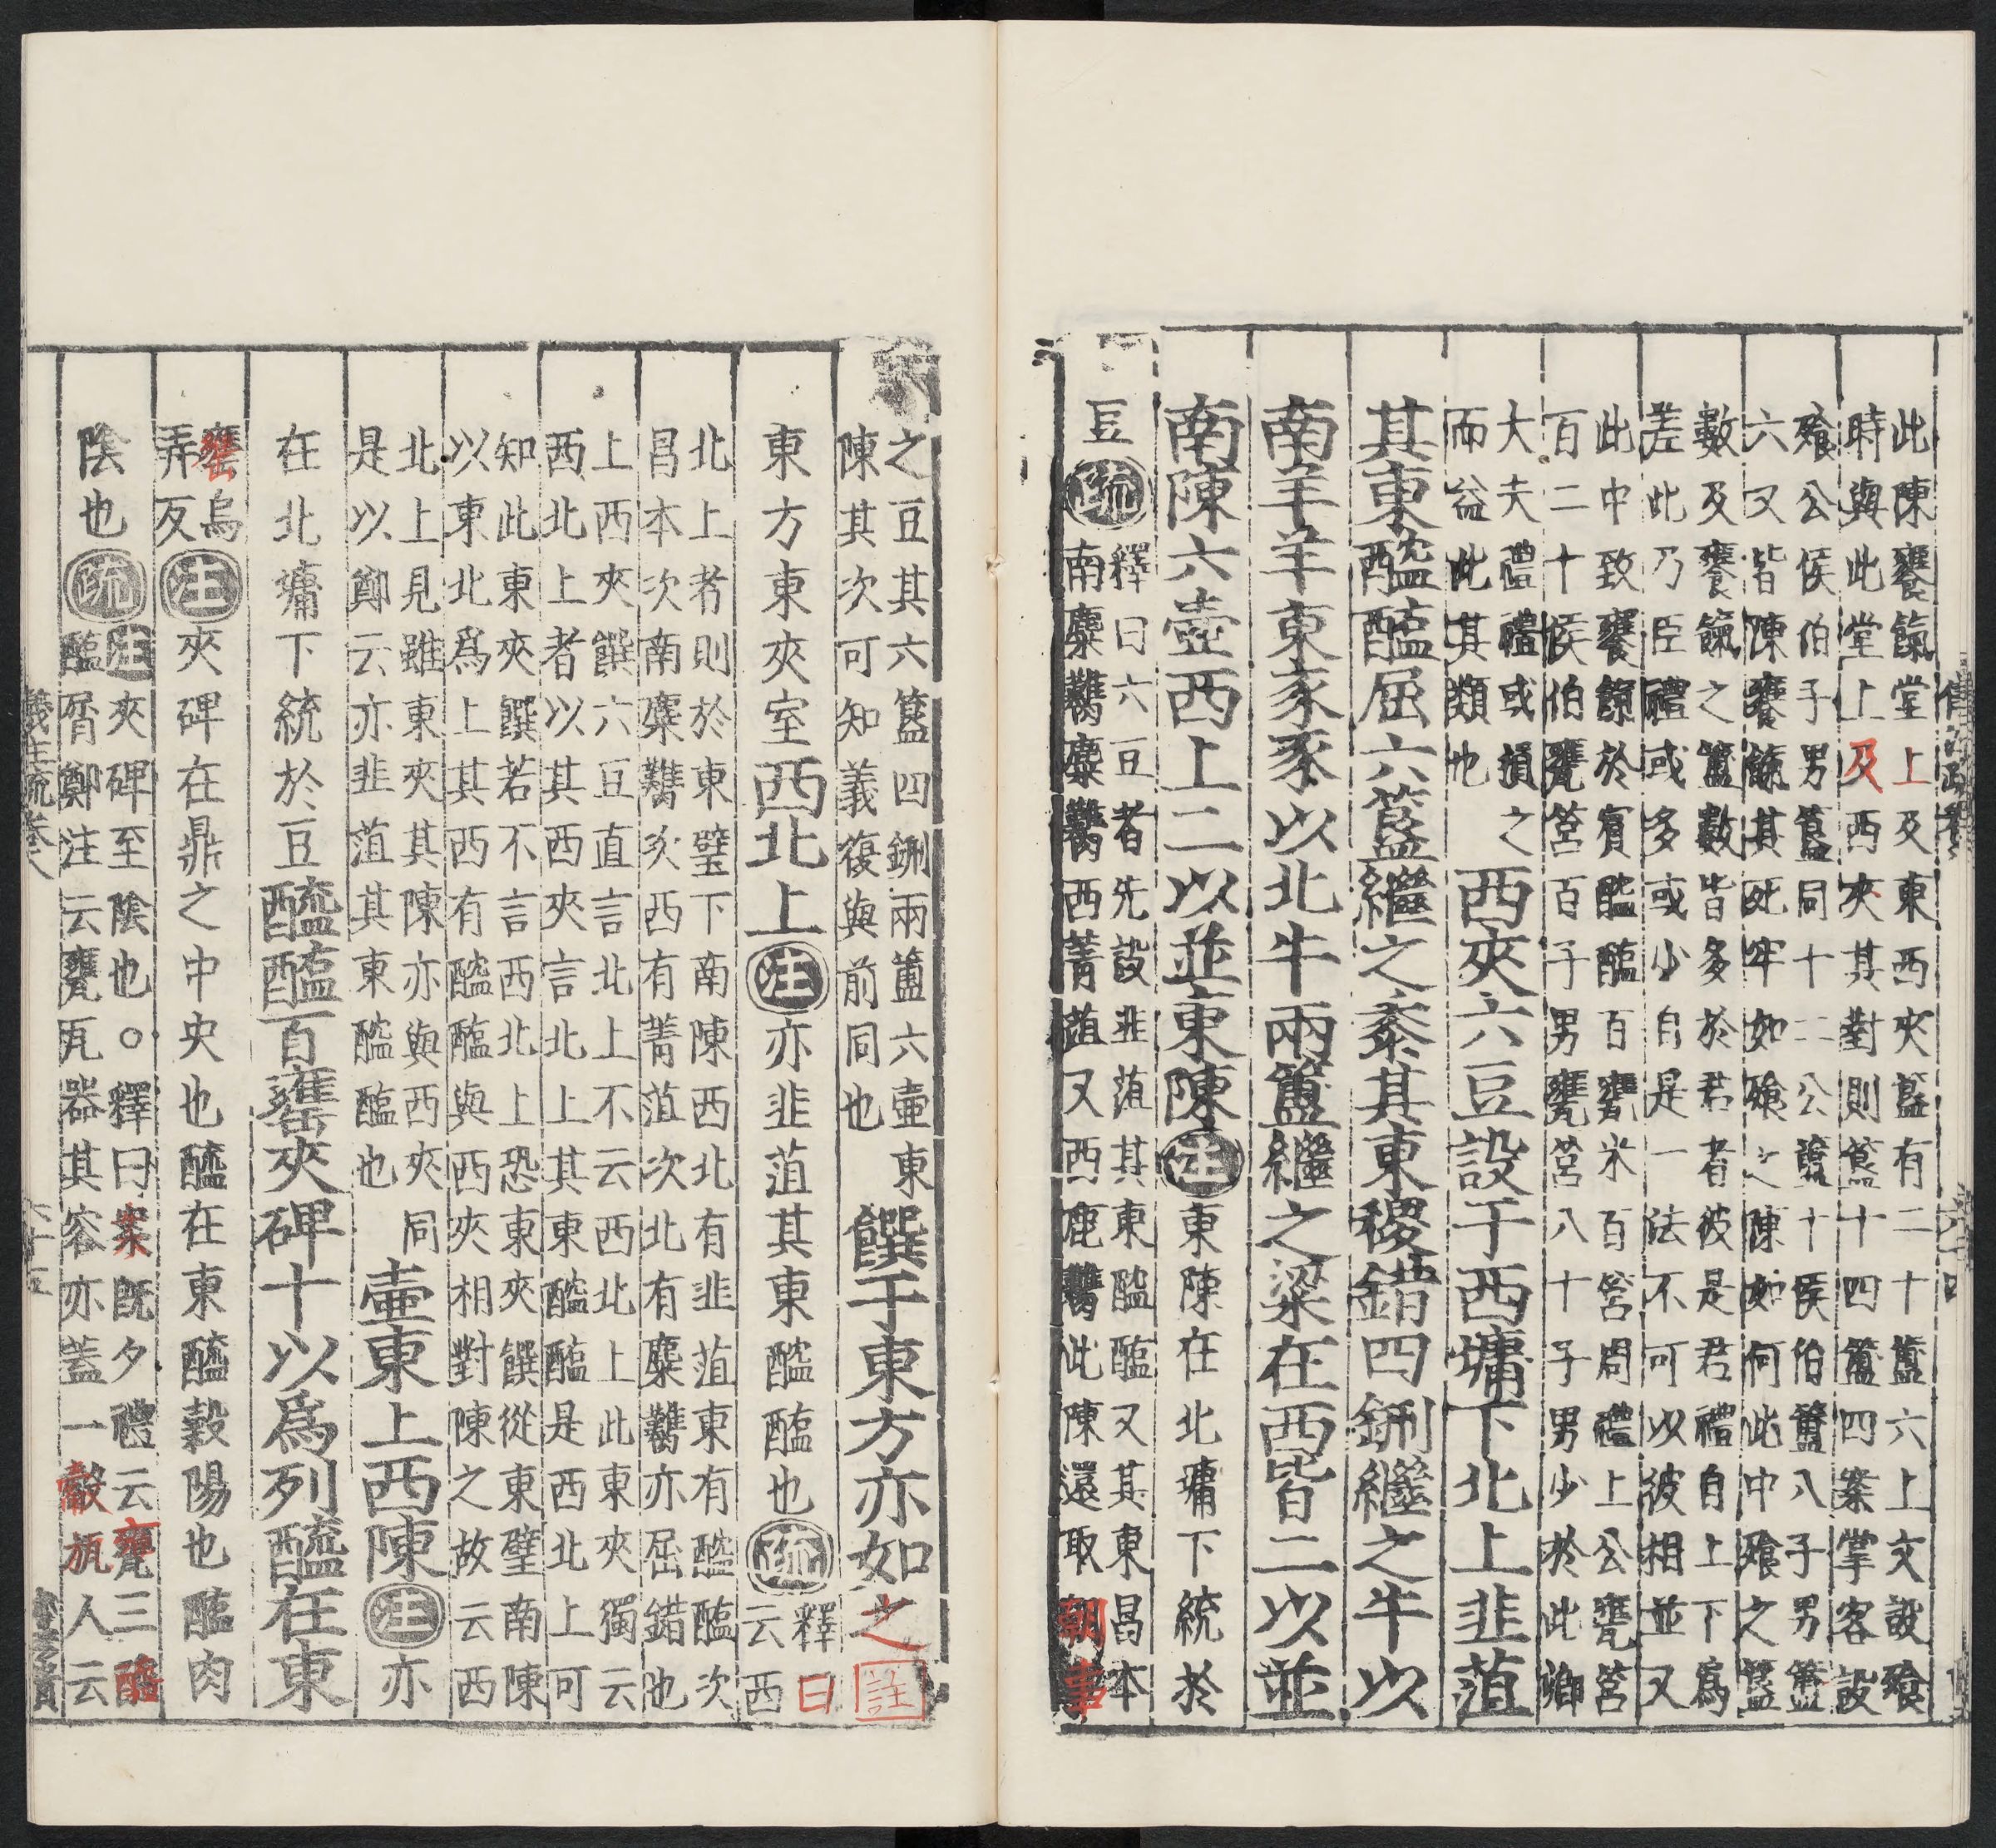 此陳饔餼堂上及東西夾簋有二十簠六上文設飧
時與此堂上及西夾其對則簋十四簠四案掌客設
飧公侯伯子男簋同十二公簠十侯伯簠八子男簠
六又皆陳饔餼其死牢如飧之陳如何此中飧之簋
數及饔餼之簋數皆多於君者彼是君禮自上下爲
差此乃臣禮或多或少自是一法不可以彼相並又
此中致饔餼於賓醯醢百甕米百筥周禮上公甕筥
百二十侯伯甕筥百子男甕筥八十子男少於此卿
大夫禮禮或損之
而益此其類也
西夾六豆設于西墉下北上韭菹
其東醓醢屈六簋繼之黍其東稷錯四鉶繼之牛以
南羊羊東豕豕以北牛兩簠繼之粱在西皆二以並
南陳六壺西上二以並東陳
注
東陳在北墉下統於
豆
疏
釋曰六豆者先設韭菹其東醓醢又其東昌本
南麋臡麋臡西菁菹又西鹿臡此陳還取朝事
之豆其六簋四鉶兩簠六壺東
陳其次可知義復與前同也
饌于東方亦如之
註
東方東夾室
西北上
注
亦韭菹其東醓醢也
疏
釋曰
云西
北上者則於東壁下南陳西北有韭菹東有醓醢次
昌本次南麋臡次西有菁菹次北有麋臡亦屈錯也
上西夾饌六豆直言北上不云西北上此東夾獨云
西北上者以其西夾言北上其東醓醢是西北上可
知此東夾饌若不言西北上恐東夾饌從東壁南陳
以東北爲上其西有醓醢與西夾相對陳之故云西
北上見雖東夾其陳亦與西夾同
是以鄭云亦韭菹其東醓醢也
壺東上西陳
注
亦
在北墉下統於豆
醯醢百罋夾碑十以爲列醯在東
罋烏
弄反
注
夾碑在鼎之中央也醯在東醯穀陽也醢肉
陰也
疏
注夾碑至陰也○釋曰案既夕禮云甕三醯
醢屑鄭注云甕瓦器其容亦蓋一觳瓬人云